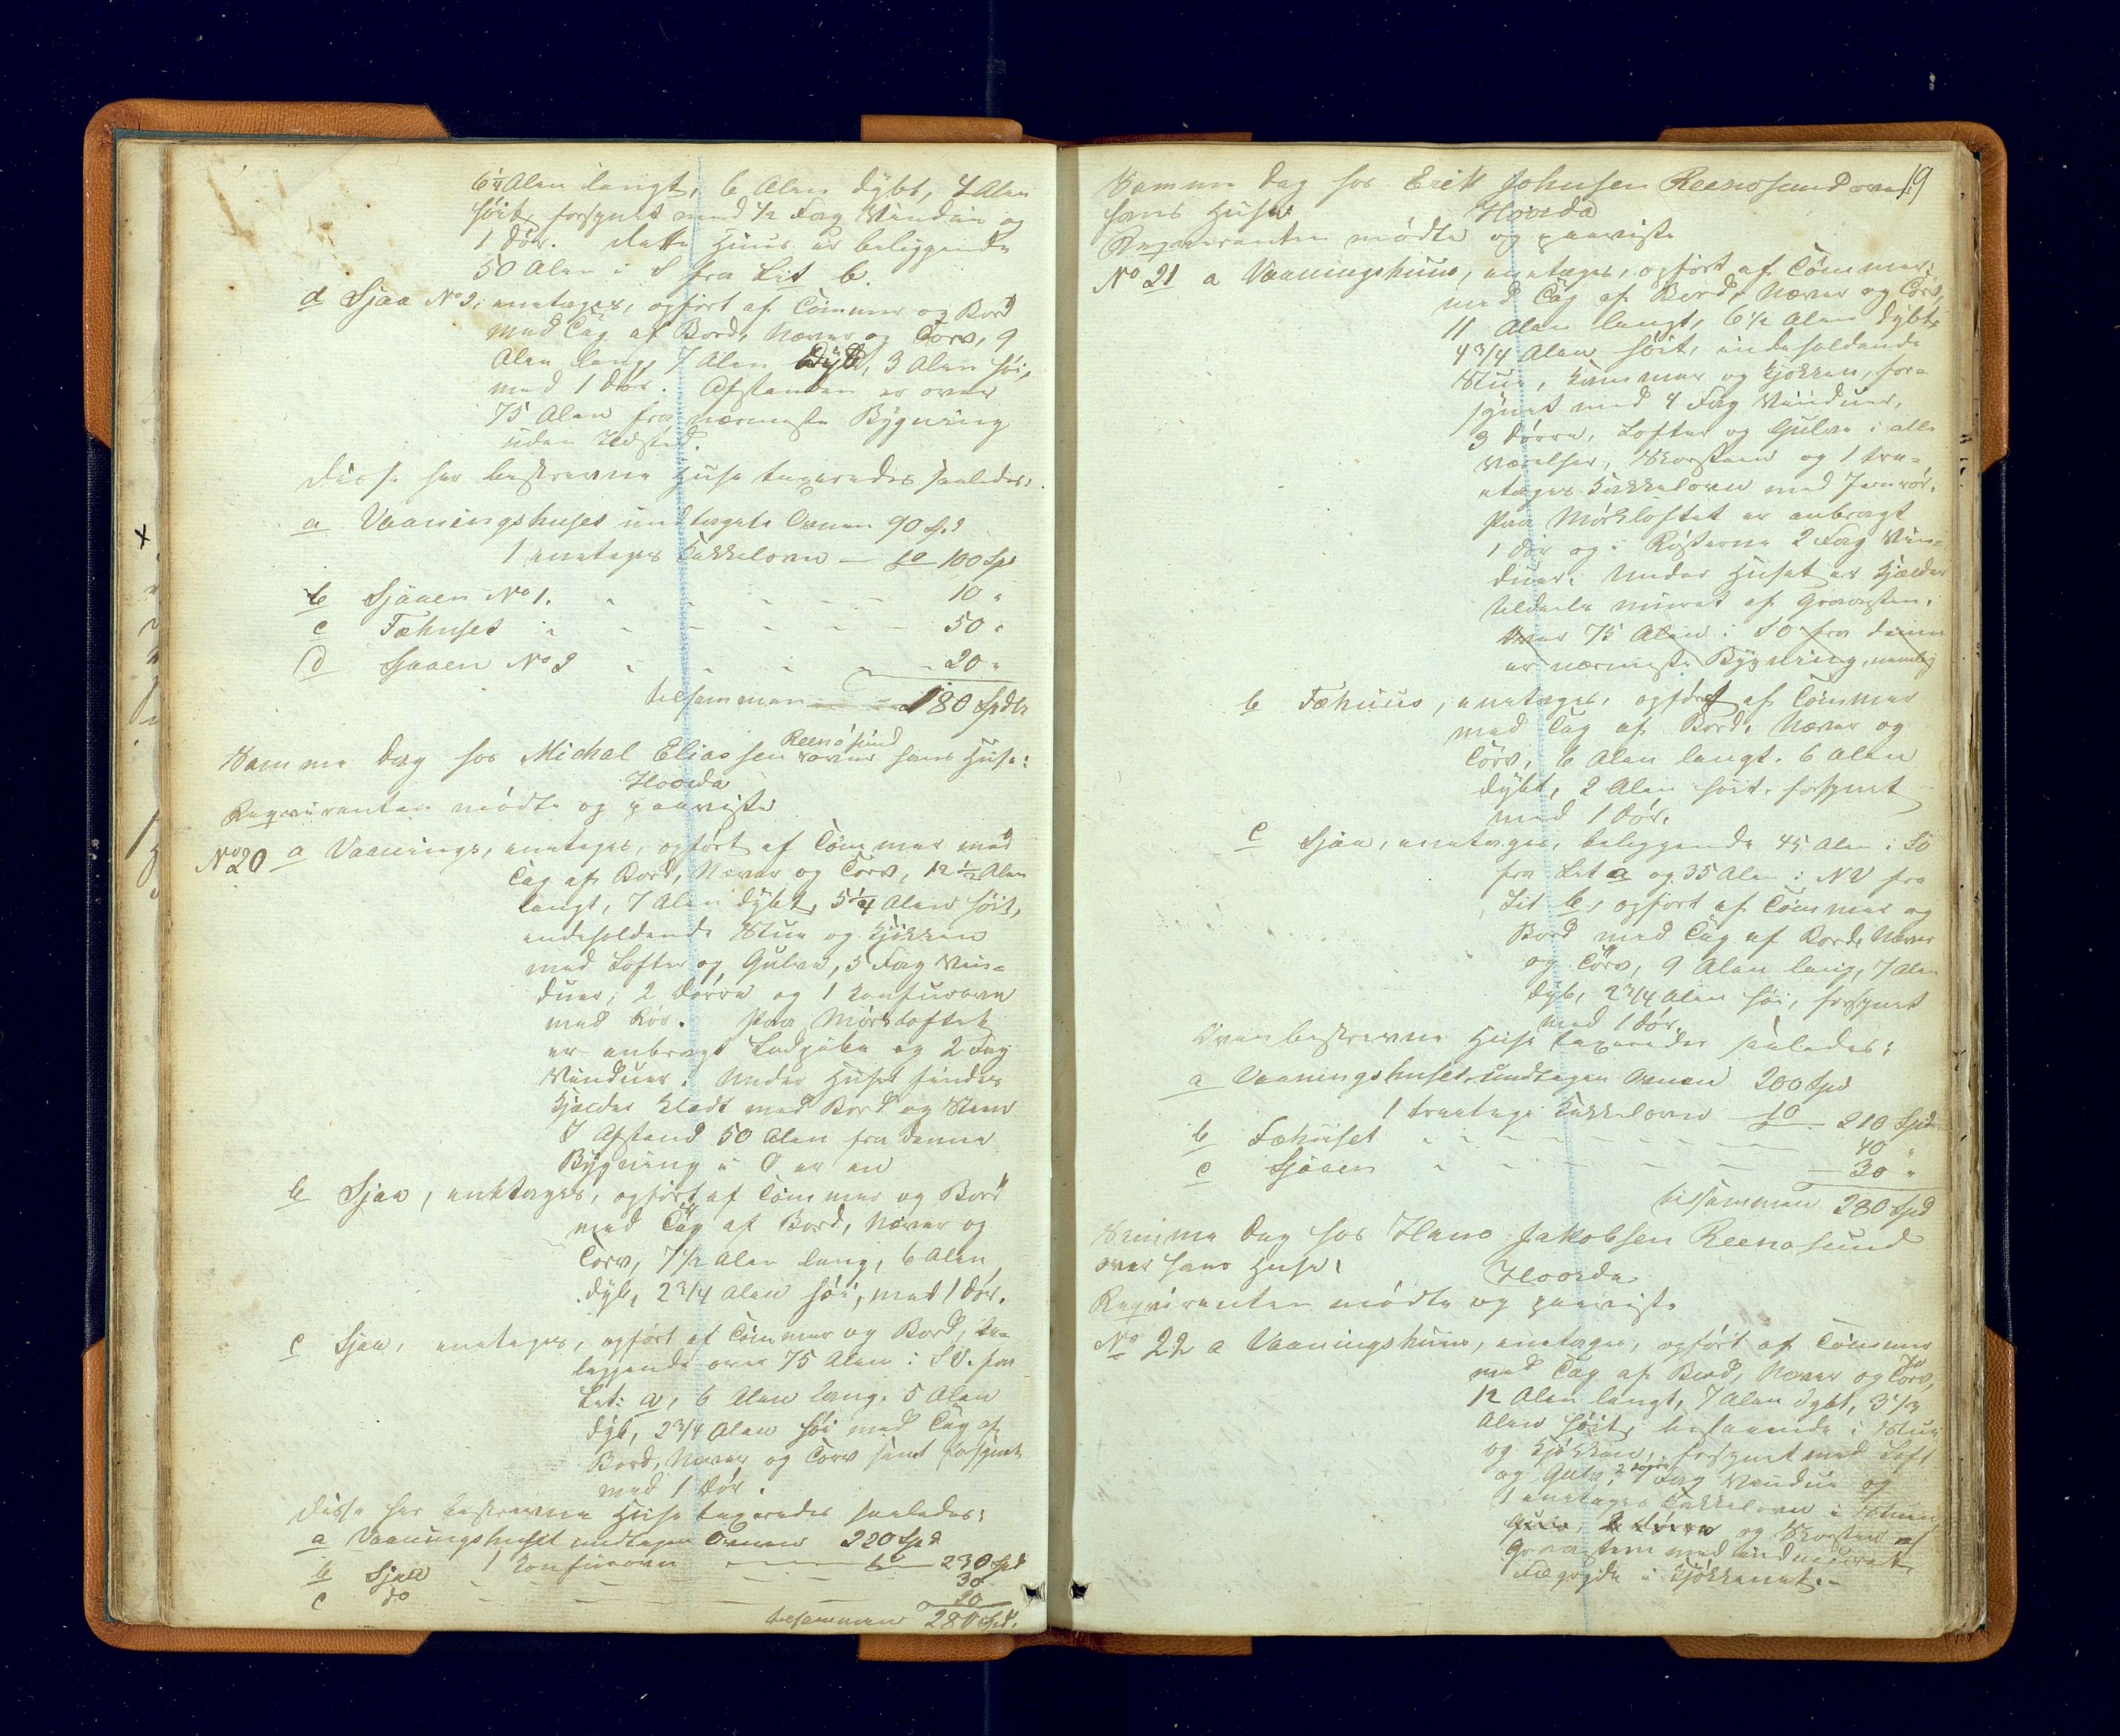 6¼ Alen langt, 6 Alen dybt, 4 Alen
höit, forsynet med ½ Fag Vindue og
1 Dör. Dette Huus er beliggende
50 Alen i S fra Lit b.
d Sjaa No 2, eenetages, opfört af Tömmer og Bord
med Tag af Bord, Næver og Torv, 9
Alen lang, 7 Alen dyb, 3 Alen höi,
med 1 Dör. Afstanden er over
75 Alen fra nærmeste Bygning
uden Ildsted.
Disse her beskrevne Huse taxeredes saaledes:
a Vaaningshuset undtagen Ovnen 90 Spd
1 eenetages Kakkelovn — 10 100 Spd
b Sjaaen No 1. 10 "
c Fæhuset 50 "
d Sjaaen No 2 20 "
tilsammen 180 Spdlr
Samme Dag hos Michal Eliassen Reenösund over hans Huse:
Hvorda
Reqvirenten mödte og paaviste
No 20 a Vaanings, eenetages, opfört af Tömmer med
Tag af Bord, Næver og Torv, 12½ Alen
langt, 7 Alen dybt, 5¼ Alen höit,
indeholdende Stue og Kjökken
med Lofter og Gulve, 5 Fag Vin=
duer, 2 Dörre og 1 Komfurovn
med Rör. Paa Mörkloftet
er anbragt Ludpibe og 2 Fag
Vinduer. Under Huset findes
Kjælder klædt med Bord og Steen
I Afstand 50 Alen fra denne
Bygning i O er en
b Sjaa, eenetages, opfört af Tömmer og Bord
med Tag af Bord, Næver og
Torv, 7½ Alen lang, 6 Alen
dyb, 2¾ Alen höi, med 1 Dör.
c Sjaa, eenetages, opfört af Tömmer og Bord, be=
liggende over 75 Alen i SV. fra
Lit: a, 6 Alen lang, 5 Alen
dyb, 2¾ Alen höi med Tag af
Bord, Næver og Torv samt forsynet
med 1 Dör.
Disse her beskrevne Huse taxeredes saaledes:
a Vaaningshuset undtagen Ovnen 220 Spd
1 Komfurovn — 10 — 230 Spd
b Sjaa 30
c do 20
tilsammen 280 Spd.
19
Samme Dag hos Erik Johnsen Reenösund over
hans Huse:
Hvorda
Reqvirenten mödte og paaviste
No 21 a Vaaningshuus, eenetages, opfört af Tömmer,
med Tag af Bord, Næver og Torv,
11 Alen langt, 6½ Alen dybt,
4¾ Alen höit, indeholdende
Stue, Kammer og Kjökken, for=
synet med 4 Fag Vinduer,
3 Dörre, Lofter og Gulve i alle
Værelser, Skorsteen og 1 tre=
etages Kakkelovn med Jernrör.
Paa Mörkloftet er anbragt
1 Dör og i Rösterne 2 Fag Vin=
duer. Under Huset er Kjælder
tildeels muret af Graasteen.
Over 75 Alen i SO fra denne
er nærmeste Bygning, nemlig
b Fæhuus, eenetages, opfört af Tömmer
med Tag af Bord, Næver og
Torv, 6 Alen langt, 6 Alen
dybt, 2 Alen höit, forsynet
med 1 Dör.
c Sjaa, eenetages, beliggende 45 Alen i SO
fra Lit a og 35 Alen i NV fra
Lit b, opfört af Tömmer og
Bord med Tag af Bord, Næver
og Torv, 9 Alen lang, 7 Alen
dyb, 2¾ Alen höi, forsynet
med 1 Dör.
Ovenbeskrevne Huse taxeredes saaledes:
a Vaaningshuset undtagen Ovnen 200 Spd
1 treetages Kakkelovn — 10 — 210 Spd
b Fæhuset 40 "
c Sjaaen 30 "
tilsammen 280 Spd
Samme Dag hos Hans Jakobsen Reenösund
over hans Huse:
Hvorda
Reqvirenten mödte og paaviste
No 22 a Vaaningshuus, eenetages, opfört af Tömmer
med Tag af Bord, Næver og Torv,
12 Alen langt, 7 Alen dybt, 3½
Alen höit, bestaaende i Stue
og Kjökken, forsynet med Loft
og Gulv, 2 Dörre, 7 Fag Vindue og
1 eenetages Kakkelovn i Stuen,
2 Dörre og Skorsteen af
Graasteen med indmuret
i Kjökkenet.-